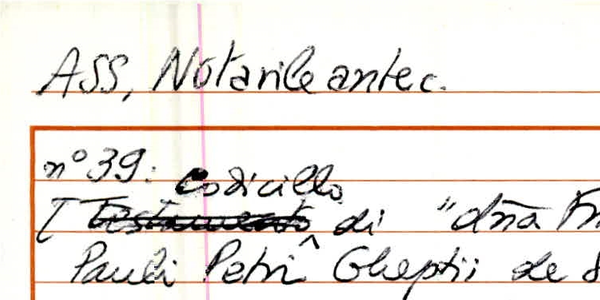 ASS, Notarile antec.
nº 39: codicillo
[Testamento di "dña Fr
Pauli Petri Gheptii de S